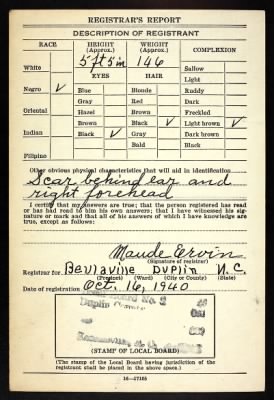 REGISTRAR'S REPORT
DESCRIPTION OF REGISTRANT
RACE HEIGHT (Approx.) WEIGHT (Approx.) COMPLEXION
White 5 ft 5 in 146 Sallow
EYES HAIR Light
Negro ✓ Blue Blonde Ruddy
Gray Red Dark
Oriental Hazel Brown Freckled
Brown Black ✓ Light brown ✓
Indian Black ✓ Gray Dark brown
Bald Black
Filipino
Other obvious physical characteristics that will aid in identification
Scar behind ear and
right forehead
I certify that my answers are true; that the person registered has read
or has had read to him his own answers; that I have witnessed his
signature or mark and that all of his answers of which I have knowledge
are true, except as follows:
Maude Ervin
(Signature of registrar)
Registrar for Beulaville Duplin N.C.
(Precinct) (Ward) (City or County) (State)
Date of registration Oct. 16, 1940
Board No. 2
Duplin
(STAMP OF LOCAL BOARD)
(The stamp of the Local Board having jurisdiction of the
registrant shall be placed in the above space.)
16—17105